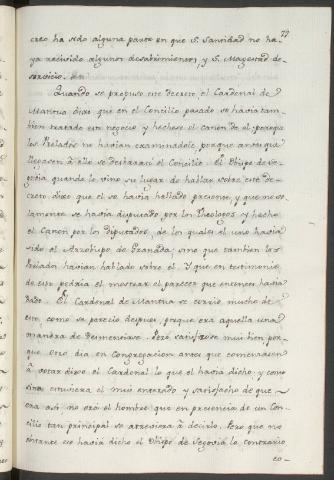 77
creo ha sido alguna parte en que S. Santidad no ha-
ya recivido algunos desabrimientos, y S. Magestad de-
servicio.
Quando se propuso este decreto el Cardenal de
Mantua dixo que en el Concilio pasado se havia tam-
bien tratado este negocio y hechose el canon de el porque
los Prelados no havian examinadole porque antes que
llegasen à ello se desbarató el Concilio. El Obispo de Se-
govia quando le vino su lugar de hablar sobre este de-
creto dixo que el se havia hallado presente, y que no so-
lamente se havia disputado por los Theologos y hecho
el Canon por los diputados, de los quales el uno havia
sido el Arzobispo de Granada; sino que tambien los
Prelados havian hablado sobre el. Y que en testimonio
de esto podria el mostrar el parecer que entonces havia
dado. El Cardenal de Mantua se corrió mucho de
esto como se pareció despues, porque era aquella una
manera de desmentirse. Pero satisfizose mui bien por-
que otro dia en Congregacion antes que comenzasen
à votar dixo el Cardenal lo que el havia dicho, y como
sino estuviera el mui enterado y satisfecho de que
era asi, no era el hombre que en presencia de un Con-
cilio tan principal se atreviera à decirlo. Pero que no
obstante eso havia dicho el Obispo de Segovia lo contrario